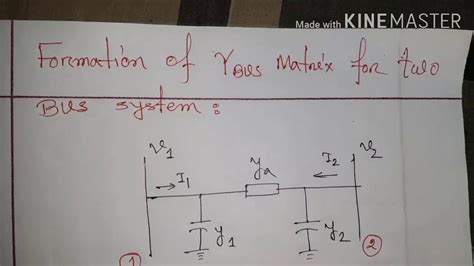 Made with KINEMASTER
Formation of YBUS Matrix for two
Bus system:
V1
V2
I1
ya
I2
y1
y2
1
2